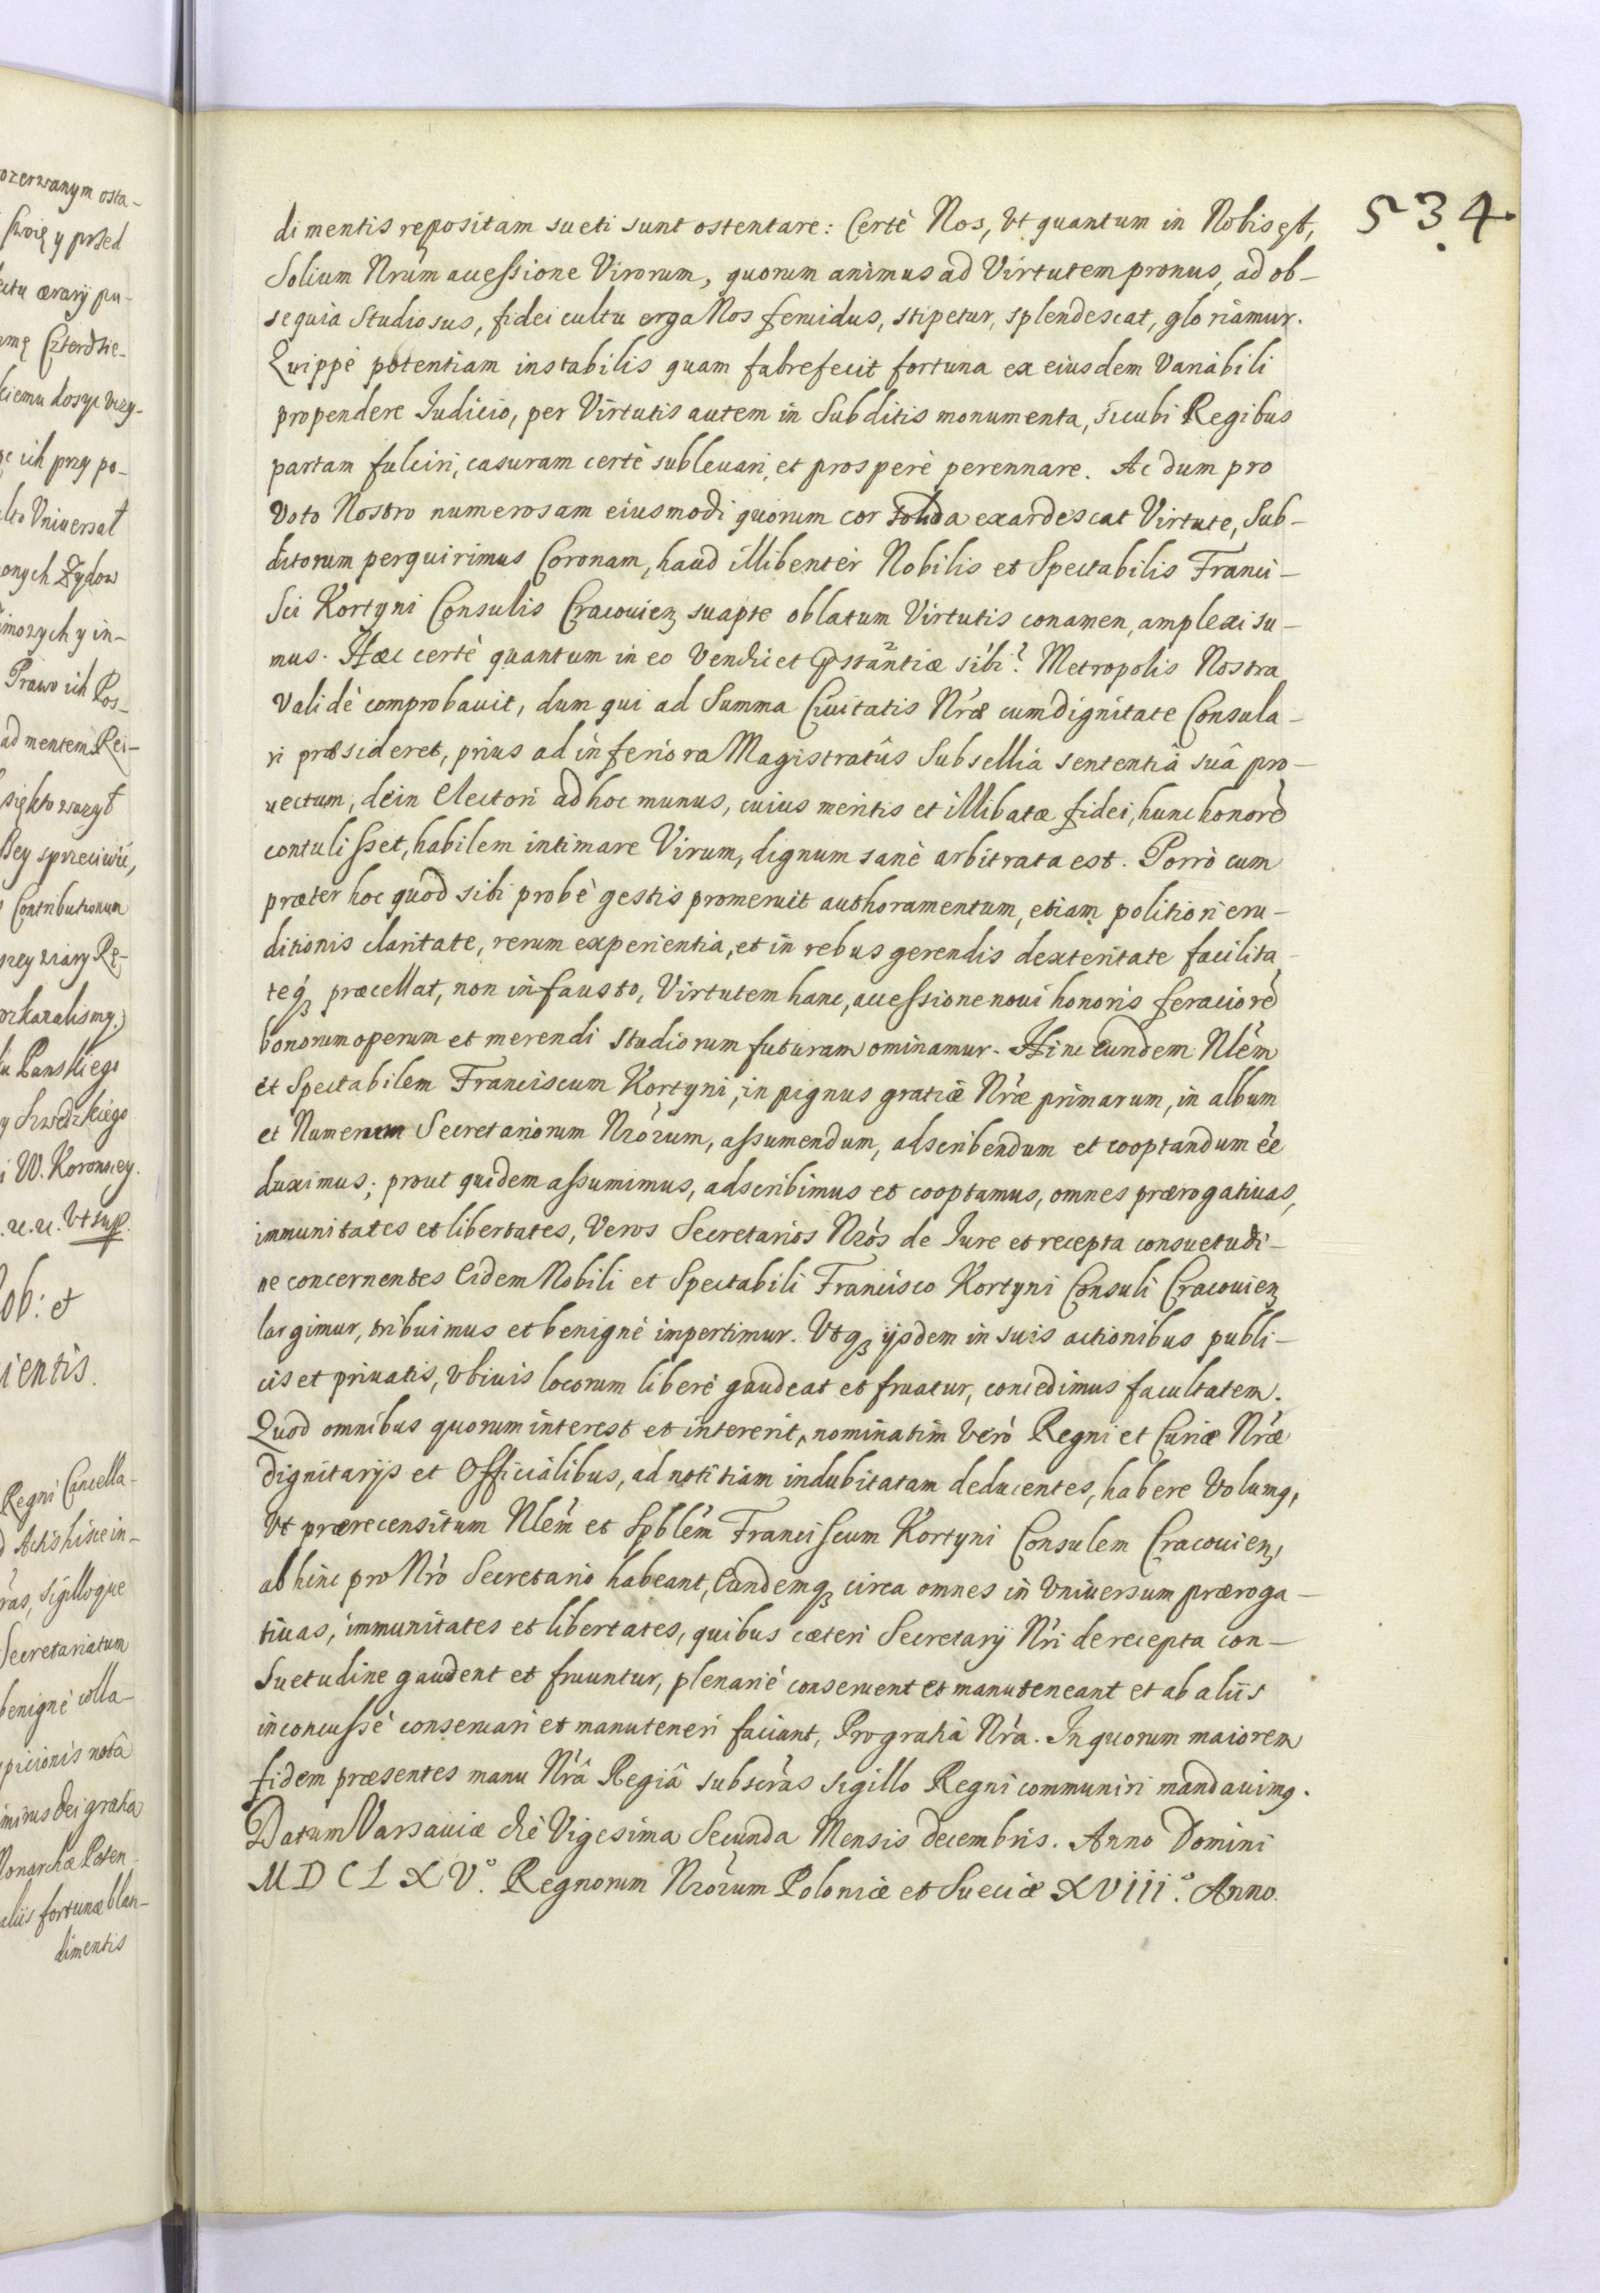 534
di mentis repositam sueti sunt ostentare: Certè Nos, Vt quantum in Nobis est,
Solium Nrũm accessione Virorum, quorum animus ad Virtutem pronus, ad ob-
sequia studiosus, fidei cultu erga Nos feruidus, stipetur, splendescat, gloriamur.
Quippè potentiam instabilis quam fabrefecit fortuna ex eiusdem Variabili
propendere Iudicio, per Virtutis autem in Subditis monumenta, sicubi Regibus
partam fulciri, casuram certè subleuari, et prosperè perennare. Ac dum pro
Voto Nostro numerosam eiusmodi quorum cor solida exardescat Virtute, Sub-
ditorum perquirimus Coronam, haud illibenter Nobilis et Spectabilis Franci-
sci Kortyni Consulis Cracouien suapte oblatum Virtutis conamen, amplexi su-
mus. Hæc certè quantum in eo Vendicet Pstãntiæ sibi? Metropolis Nostra
Validè comprobauit, dum qui ad Summa Ciuitatis Nræ cum dignitate Consula-
ri præsideret, prius ad inferiora Magistratûs Subsellia sententiâ suâ pro-
uectum, dein Electori ad hoc munus, cuius meritis et illibatæ fidei, hunc honorẽ
contulisset, habilem intimare Virum, dignum sanè arbitrata est. Porrò cum
præter hoc quod sibi probè gestis promeruit authoramentum, etiam politiori eru-
ditionis claritate, rerum experientia, et in rebus gerendis dexteritate facilita-
teq; præcellat, non infausto, Virtutem hanc, accessione noui honoris feraciorẽ
bonorum operum et merendi studiorum futuram ominamur. Hinc Eundem Nlẽm
et Spectabilem Franciscum Kortyni, in pignus gratiæ Nræ primarum, in album
et Numerum Secretariorum Nrõrum, assumendum, adscribendum et cooptandum ẽe
duximus; prout quidem assumimus, adscribimus et cooptamus, omnes prærogatiuas,
immunitates et libertates, Veros Secretarios Nrõs de Iure et recepta consuetudi-
ne concernentes Eidem Nobili et Spectabili Francisco Kortyni Consuli Cracouien
largimur, tribuimus et benignè impertimur. Vtq; ijsdem in suis actionibus publi-
cis et priuatis, vbiuis locorum liberè gaudeat et fruatur, concedimus facultatem.
Quod omnibus quorum interest et intererit, nominatim Verò Regni et Curiæ Nræ
dignitarijs et Officialibus, ad notitiam indubitatam deducentes, habere Volumq,
Vt prærecensitum Nlẽm et Spblẽm Franciscum Kortyni Consulem Cracouien,
abhinc pro Nrõ Secretario habeant, Eundemq; circa omnes in Vniuersum præroga-
tiuas, immunitates et libertates, quibus cæteri Secretarij Nri de recepta con-
suetudine gaudent et fruuntur, plenariè conseruent et manuteneant et ab aliis
inconcussè conseruari et manuteneri faciant, Pro gratia Nrã. In quorum maiorem
fidem præsentes manu Nrâ Regiâ subscrãs sigillo Regni communiri mandauimq.
Datum Varsauiæ diè Vigesima Secunda Mensis decembris. Anno Domini
MDCLXVº. Regnorum Nrõrum Poloniæ et Sueciæ XViiiº. Anno.